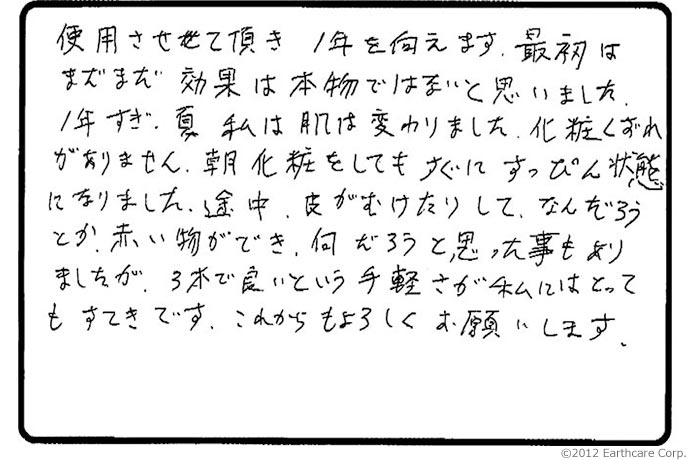 使用させせて頂き 1年を向えます。最初は
まだまだ 効果は本物ではないと思いました。
1年すぎ、夏 私は肌は変わりました。化粧くずれ
がありません。朝化粧をしてもすぐにすっぴん状態
になりました。途中、皮がむけたりして、なんだろう
とか、赤い物ができ、何だろうと思った事もあり
ましたが、3本で良いという手軽さが私にはとって
もすてきです。これからもよろしくお願いします。
©2012 Earthcare Corp.